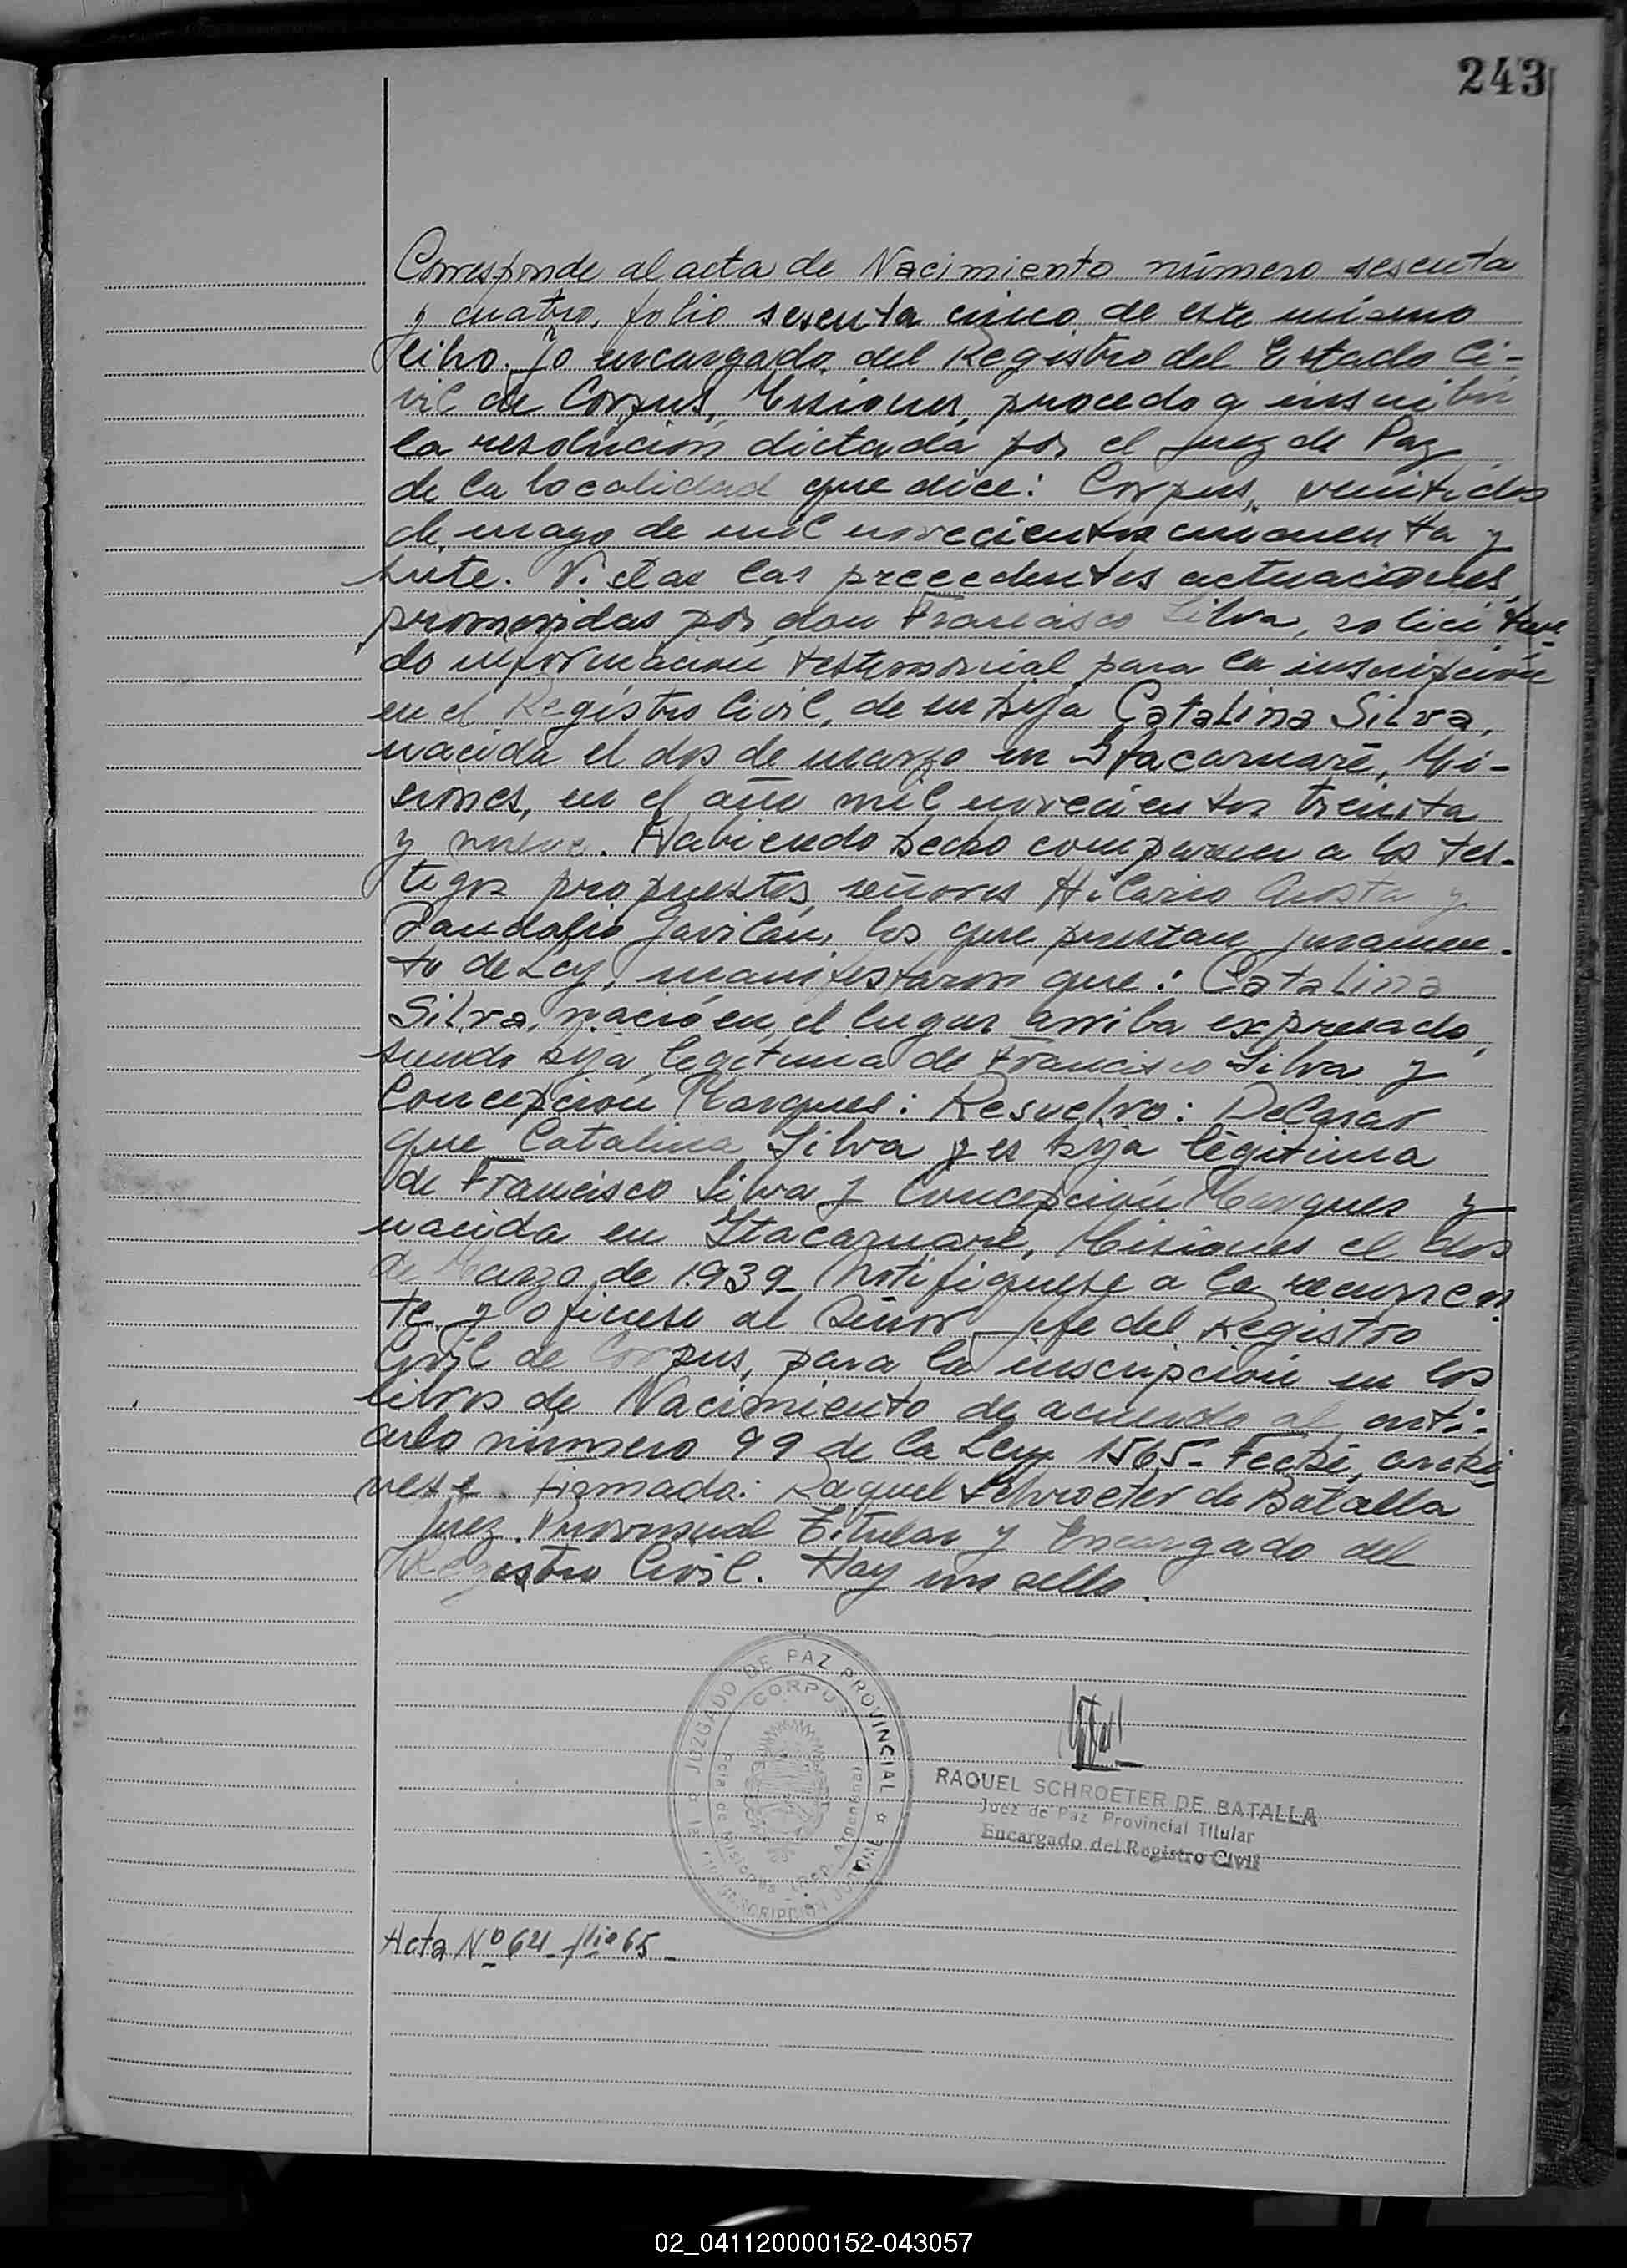 243
Corresponde al acta de Nacimiento número sesenta
y cuatro, folio sesenta cinco de este mismo
libro. Yo encargado del Registro del Estado Ci-
vil de Corpus, Misiones, procedo a inscribir
la resolución dictada por el Juez de Paz
de la localidad que dice: Corpus, veintidos
de mayo de mil novecientos cincuenta y
siete. Vistas las precedentes actuaciones,
promovidas por don Francisco Silva, solicitan-
do información testimonial para la inscripción
en el Registro Civil, de su hija Catalina Silva,
nacida el dos de marzo en Itacaruaré, Mi-
siones, en el año mil novecientos treinta
y nueve. Habiendo hecho comparecer a los tes-
tigos propuestos, señores Hilario Acosta y
Pandolfio Gavilan, los que prestan juramen-
to de Ley, manifestaron que: Catalina
Silva, nació en el lugar arriba expresado,
siendo hija legitima de Francisco Silva y
Concepción Marques: Resuelvo: Declarar
que Catalina Silva y es hija legitima
de Francisco Silva y Concepción Marques y
nacida en Itacaruaré, Misiones el dos
de Marzo de 1939_ Notifiquese a la recurren
te y oficiese al Señor Jefe del Registro
Civil de Corpus, para la inscripción en los
libros de Nacimiento de acuerdo al arti-
culo número 99 de la Ley 1565- Fecho, archi
vese. Firmado: Raquel Schroeter de Batalla
Juez Provincial Titular y Encargado del
Registro Civil. Hay un sello.
JUZGADO DE PAZ PROVINCIAL
CORPUS
Pcia. de Misiones
RAQUEL SCHROETER DE BATALLA
Juez de Paz Provincial Titular
Encargado del Registro Civil
Acta Nº 64 - flio 65 -
02_041120000152-043057